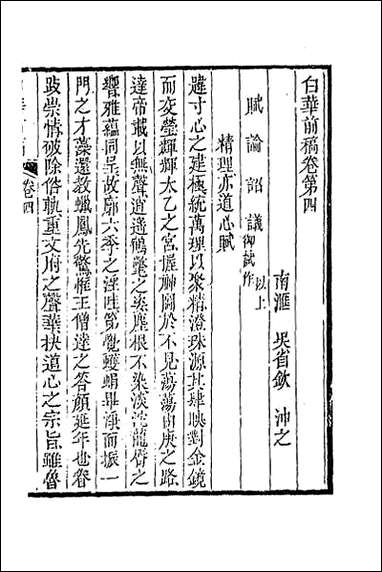 白華前稿卷第四
南滙 吳省欽 沖之
賦 論 詔 議 以上御試作
精理亦道心賦
維寸心之建極統萬理以聚精澄珠源其肆映對金鏡
而交瑩輝輝太乙之宮握神關於不見蕩蕩由庚之路
達帝載以無聲逍遥鶴氅之塵根不染淡沱龍脣之
響雅蘊同呈故廓六季之淫哇第覺蠖蜎畢淨而振一
門之才藻還教蠟鳳先驚維王僧達之答顔延年也眷
跂崇情破除俗軌重文府之聲華抉道心之宗旨雖魯
卷四